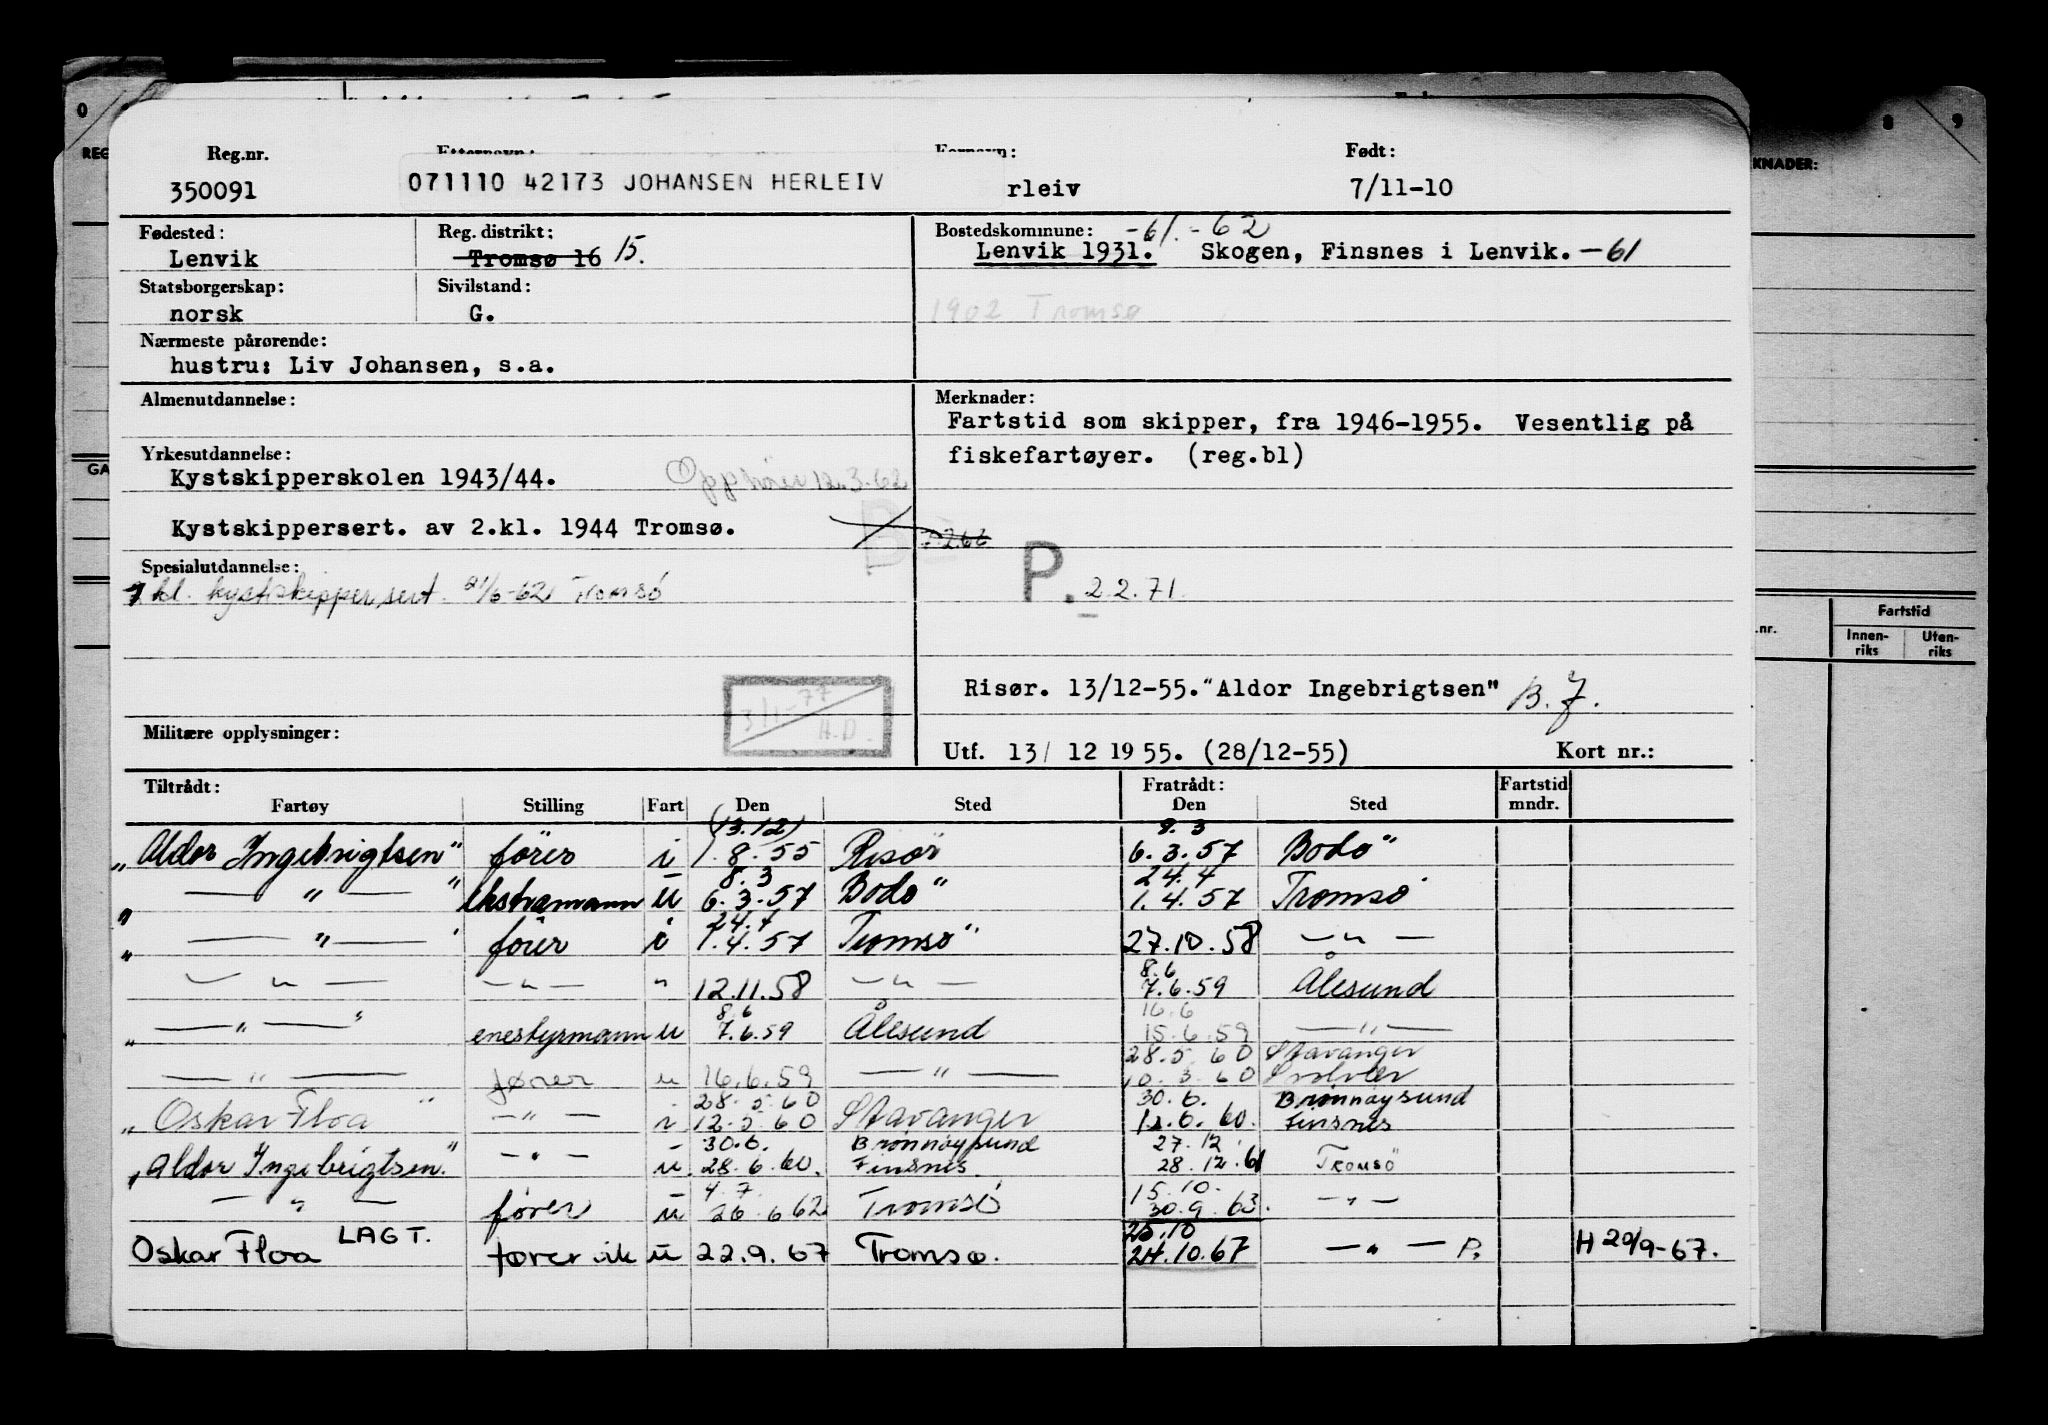 0 8 9
REG KNADER:
Reg.nr. Etternavn: Fornavn: Født:
350091 071110 42173 JOHANSEN HERLEIV rleiv 7/11-10
Fødested: Reg. distrikt: Bostedskommune: -61. -62
Lenvik Tromsø 16 15. Lenvik 1931. Skogen, Finsnes i Lenvik. -61
Statsborgerskap: Sivilstand:
norsk G. 1902 Tromsø
Nærmeste pårørende:
hustru: Liv Johansen, s.a.
Almenutdannelse: Merknader:
Fartstid som skipper, fra 1946-1955. Vesentlig på
Yrkesutdannelse: fiskefartøyer. (reg.bl)
GA Kystskipperskolen 1943/44. Opphører 12.3.62
Kystskippersert. av 2.kl. 1944 Tromsø.
Spesialutdannelse: P. 2.2.71.
kl. kystskippersert. 21/6-62 Tromsø
Fartstid
.nr. Innen-riks Uten-riks
3/1-77 H.D.
Risør. 13/12-55. "Aldor Ingebrigtsen" B.J.
Militære opplysninger: Utf. 13/ 12 1955. (28/12-55) Kort nr.:
Tiltrådt: Fratrådt: Fartstid
Fartøy Stilling Fart Den Sted Den Sted mndr.
(13.12) 9.3
"Aldor Ingebrigtsen" fører i 1.8.55 Risør 6.3.57 Bodø
8.3 24.4
" — " — " ekstramann u 6.3.57 Bodø 1.4.57 Tromsø
24.4
" — " — fører i 1.4.57 Tromsø 27.10.58 — " —
8.6
— " — — " — " 12.11.58 — " — 7.6.59 Ålesund
8.6 16.6
" — " — " enestyrmann u 7.6.59 Ålesund 15.6.59 — " —
28.5.60 Stavanger
— " — fører u 16.6.59 — " — 10.3.60 Svolvær
28.5.60 30.6. Brønnøysund
"Oskar Floa" — " — i 12.5.60 Stavanger 12.6.60. Finsnes
30.6. Brønnøysund 27.12.
"Aldor Ingebrigtsen." — " — u 28.6.60. Finsnes 28.12.61 Tromsø
4.7. 15.10.
— " — fører u 26.6.62 Tromsø 30.9.63. — " —
LAGT. 25.10
Oskar Floa fører vik u 22.9.67 Tromsø. 24.10.67 — " — P. H 20/9-67.